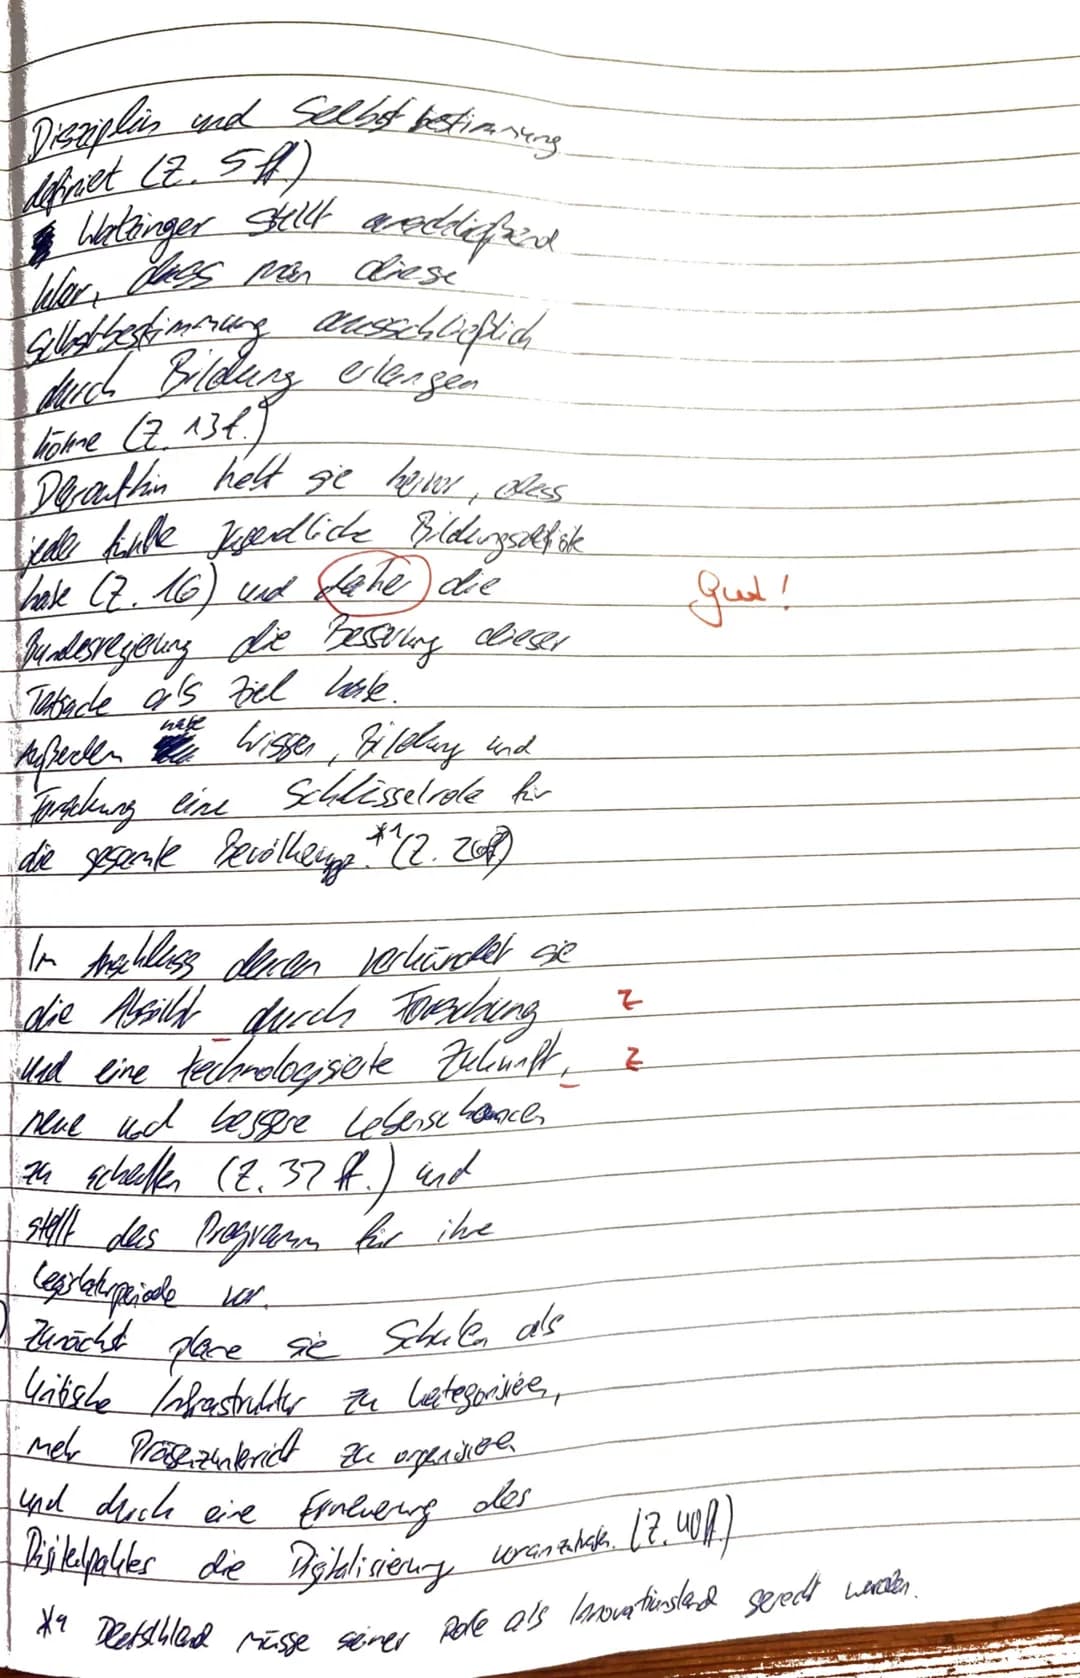 Disziplin und Selbstbestimmung
definiert (Z. 5 ff.)
Watzinger stellt anschließend
klar, dass man diese
Selbstbestimmung ausschließlich
durch Bildung erlangen
könne (Z. 13 f.)
Daraufhin hebt sie hervor, dass
jeder fünfte Jugendliche Bildungsdefizite
habe (Z. 16) und daher die
Gut!
Bundesregierung die Besserung dieser
Tatsache als Ziel habe.
habe
Außerdem Wissen, Bildung und
Forschung eine Schlüsselrole für
die gesamte Bevölkerung. *1 (Z. 20ff)
Im Anschluss deren verkündet sie
die Absicht durch Forschung
Z
und eine technologisierte Zukunft,
Z
neue und bessere Lebenschancen
zu schaffen (Z. 37 ff.) und
stellt das Programm für ihre
Legislaturperiode vor.
Zunächst plane sie Schulen als
kritische Infrastruktur zu kategorisieren,
mehr Präsenzunterricht zu organisieren
und durch eine Erneuerung des
Digitalpaktes die Digitalisierung voranzutreiben. (Z. 40ff.)
*1 Deutschland müsse seiner Role als Innovationsland gerecht werden.